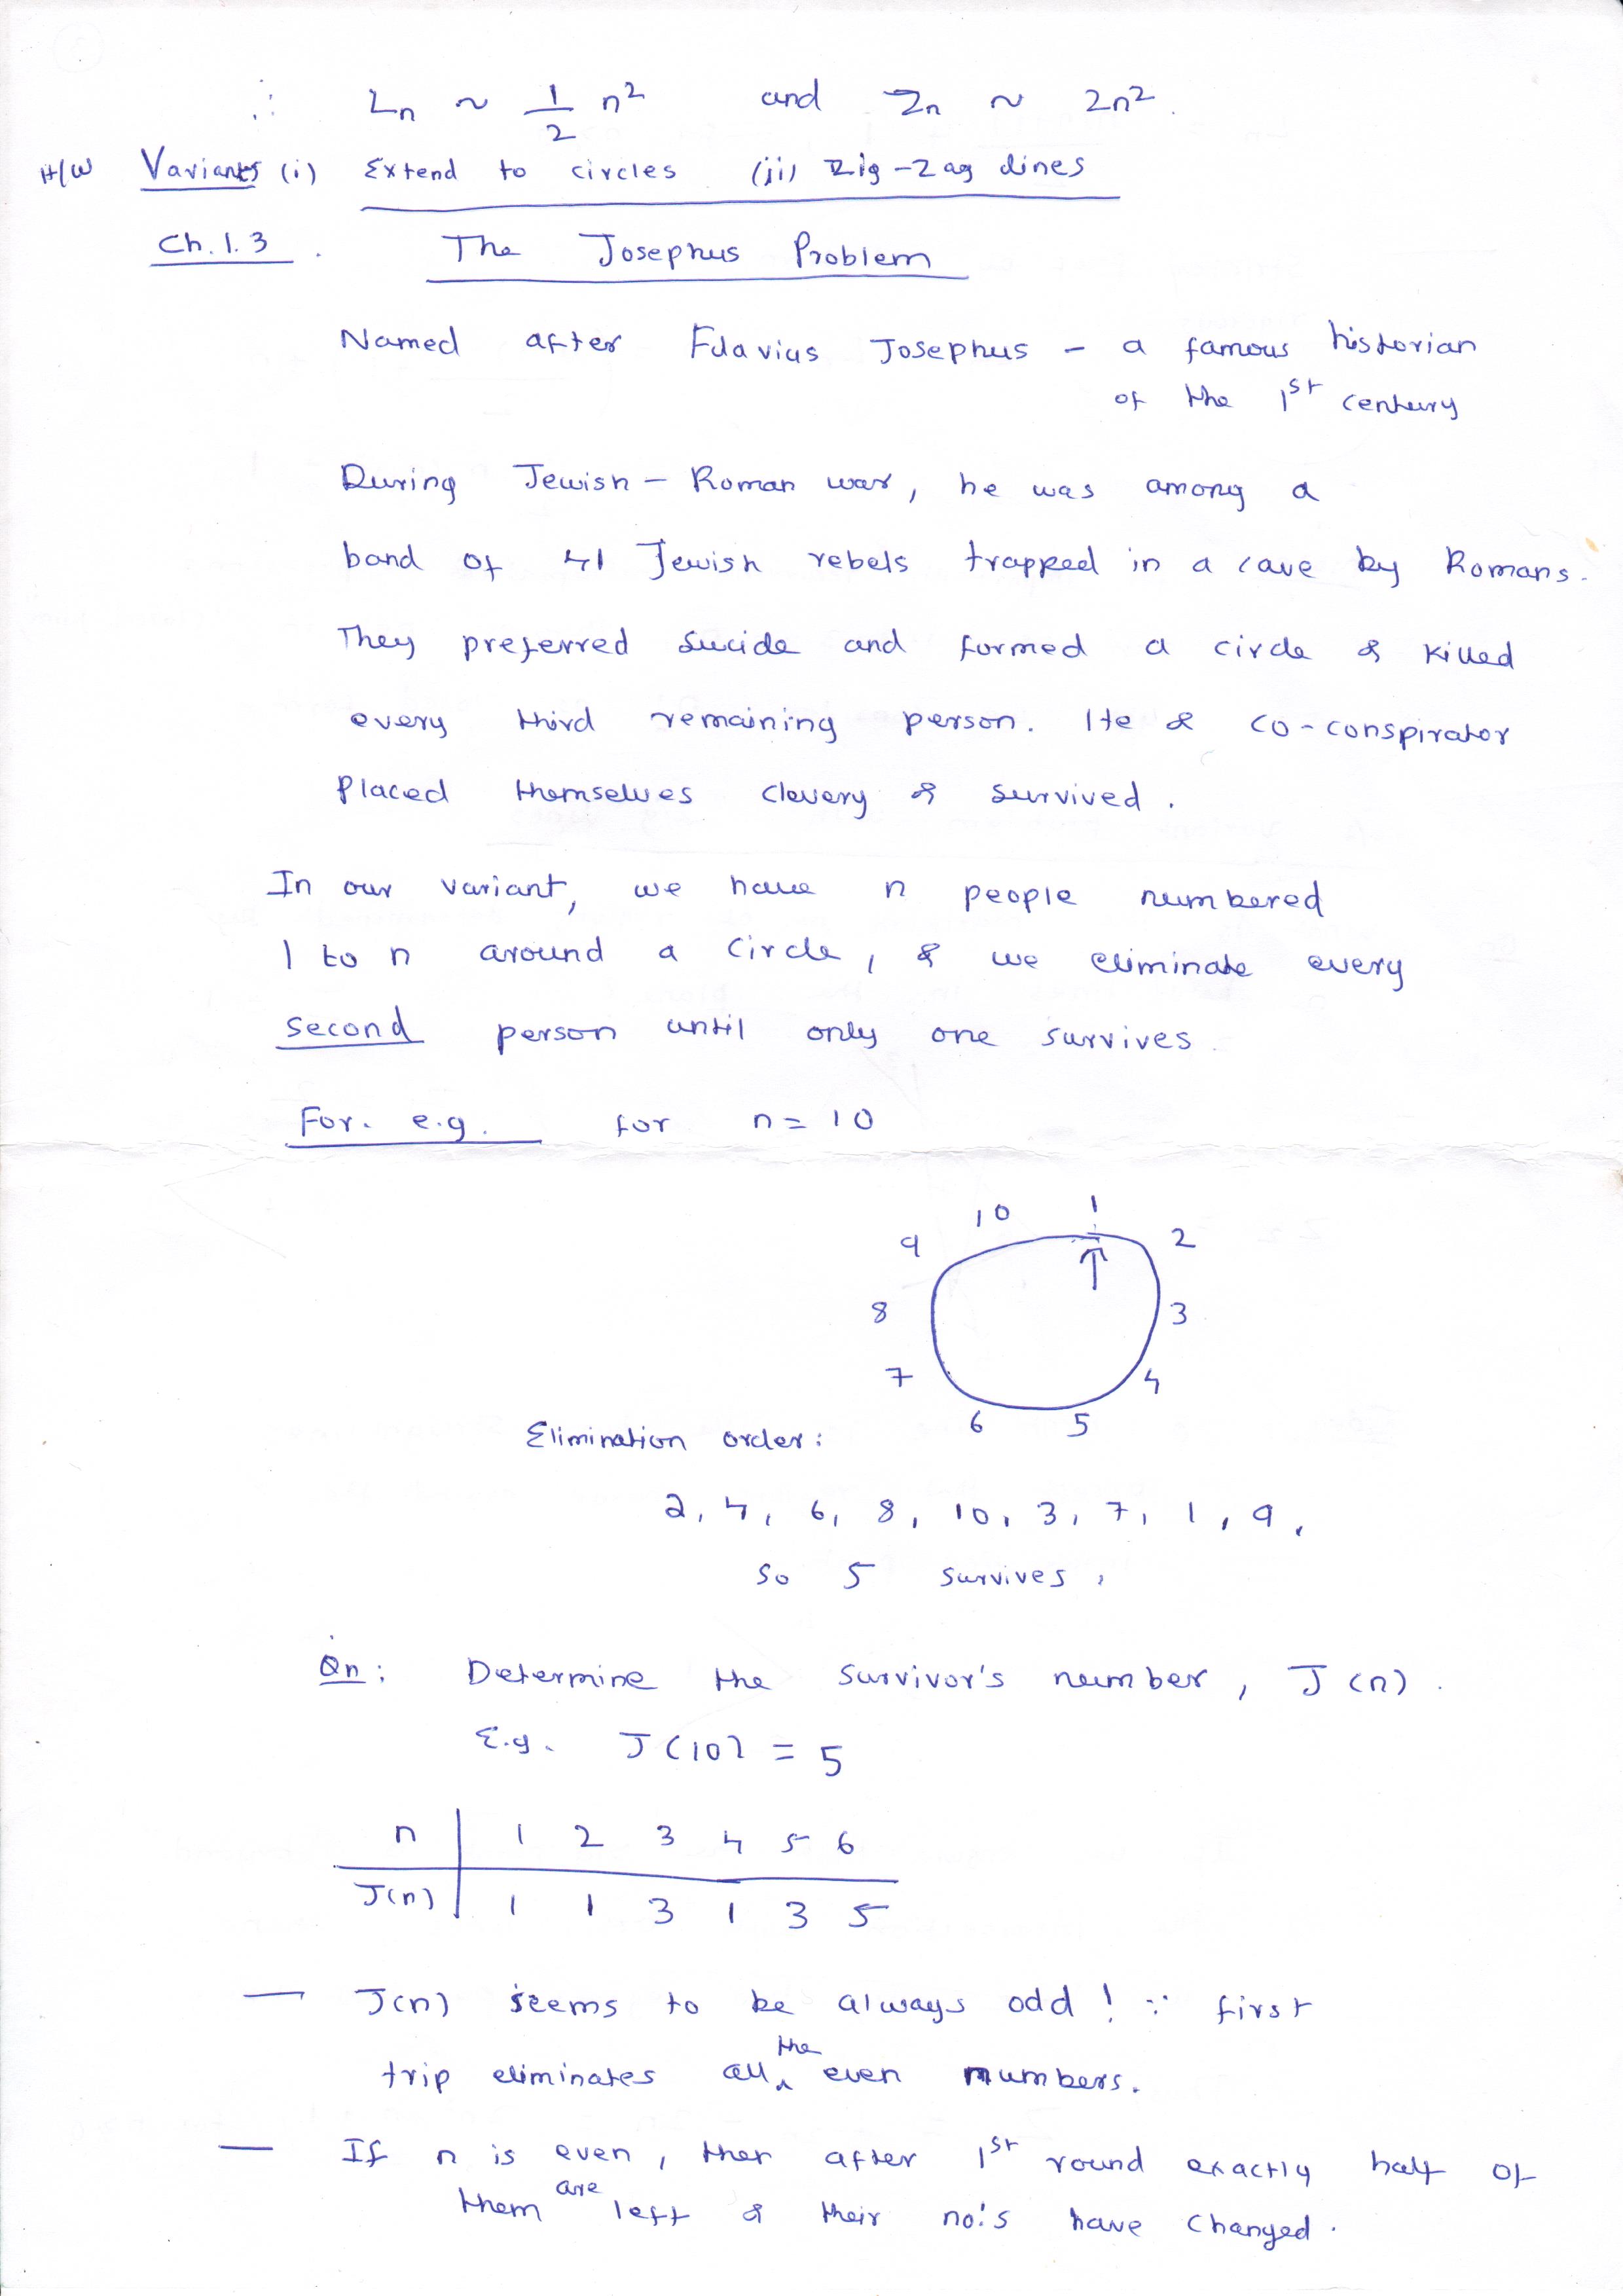 ∴ Ln ~ 1/2 n² and Zn ~ 2n².
H/W Variants (i) Extend to circles (ii) Zig-Zag lines
Ch. 1.3. The Josephus Problem
Named after Flavius Josephus - a famous historian
of the 1st century
During Jewish - Roman war, he was among a
band of 41 Jewish rebels trapped in a cave by Romans.
They preferred suicide and formed a circle & killed
every third remaining person. He & co-conspirator
placed themselves clevery & survived.
In our variant, we have n people numbered
1 to n around a circle, & we eliminate every
second person until only one survives.
For. e.g. for n = 10
10 1
9 2
8 3
7 4
6 5
↑
Elimination order:
2, 4, 6, 8, 10, 3, 7, 1, 9,
So 5 survives,
Qn: Determine the survivor's number, J(n).
E.g. J(10) = 5
n | 1 2 3 4 5 6
J(n) | 1 1 3 1 3 5
— J(n) seems to be always odd! ∵ first
trip eliminates all the even numbers.
— If n is even, then after 1st round exactly half of
them are left & their no's have changed.